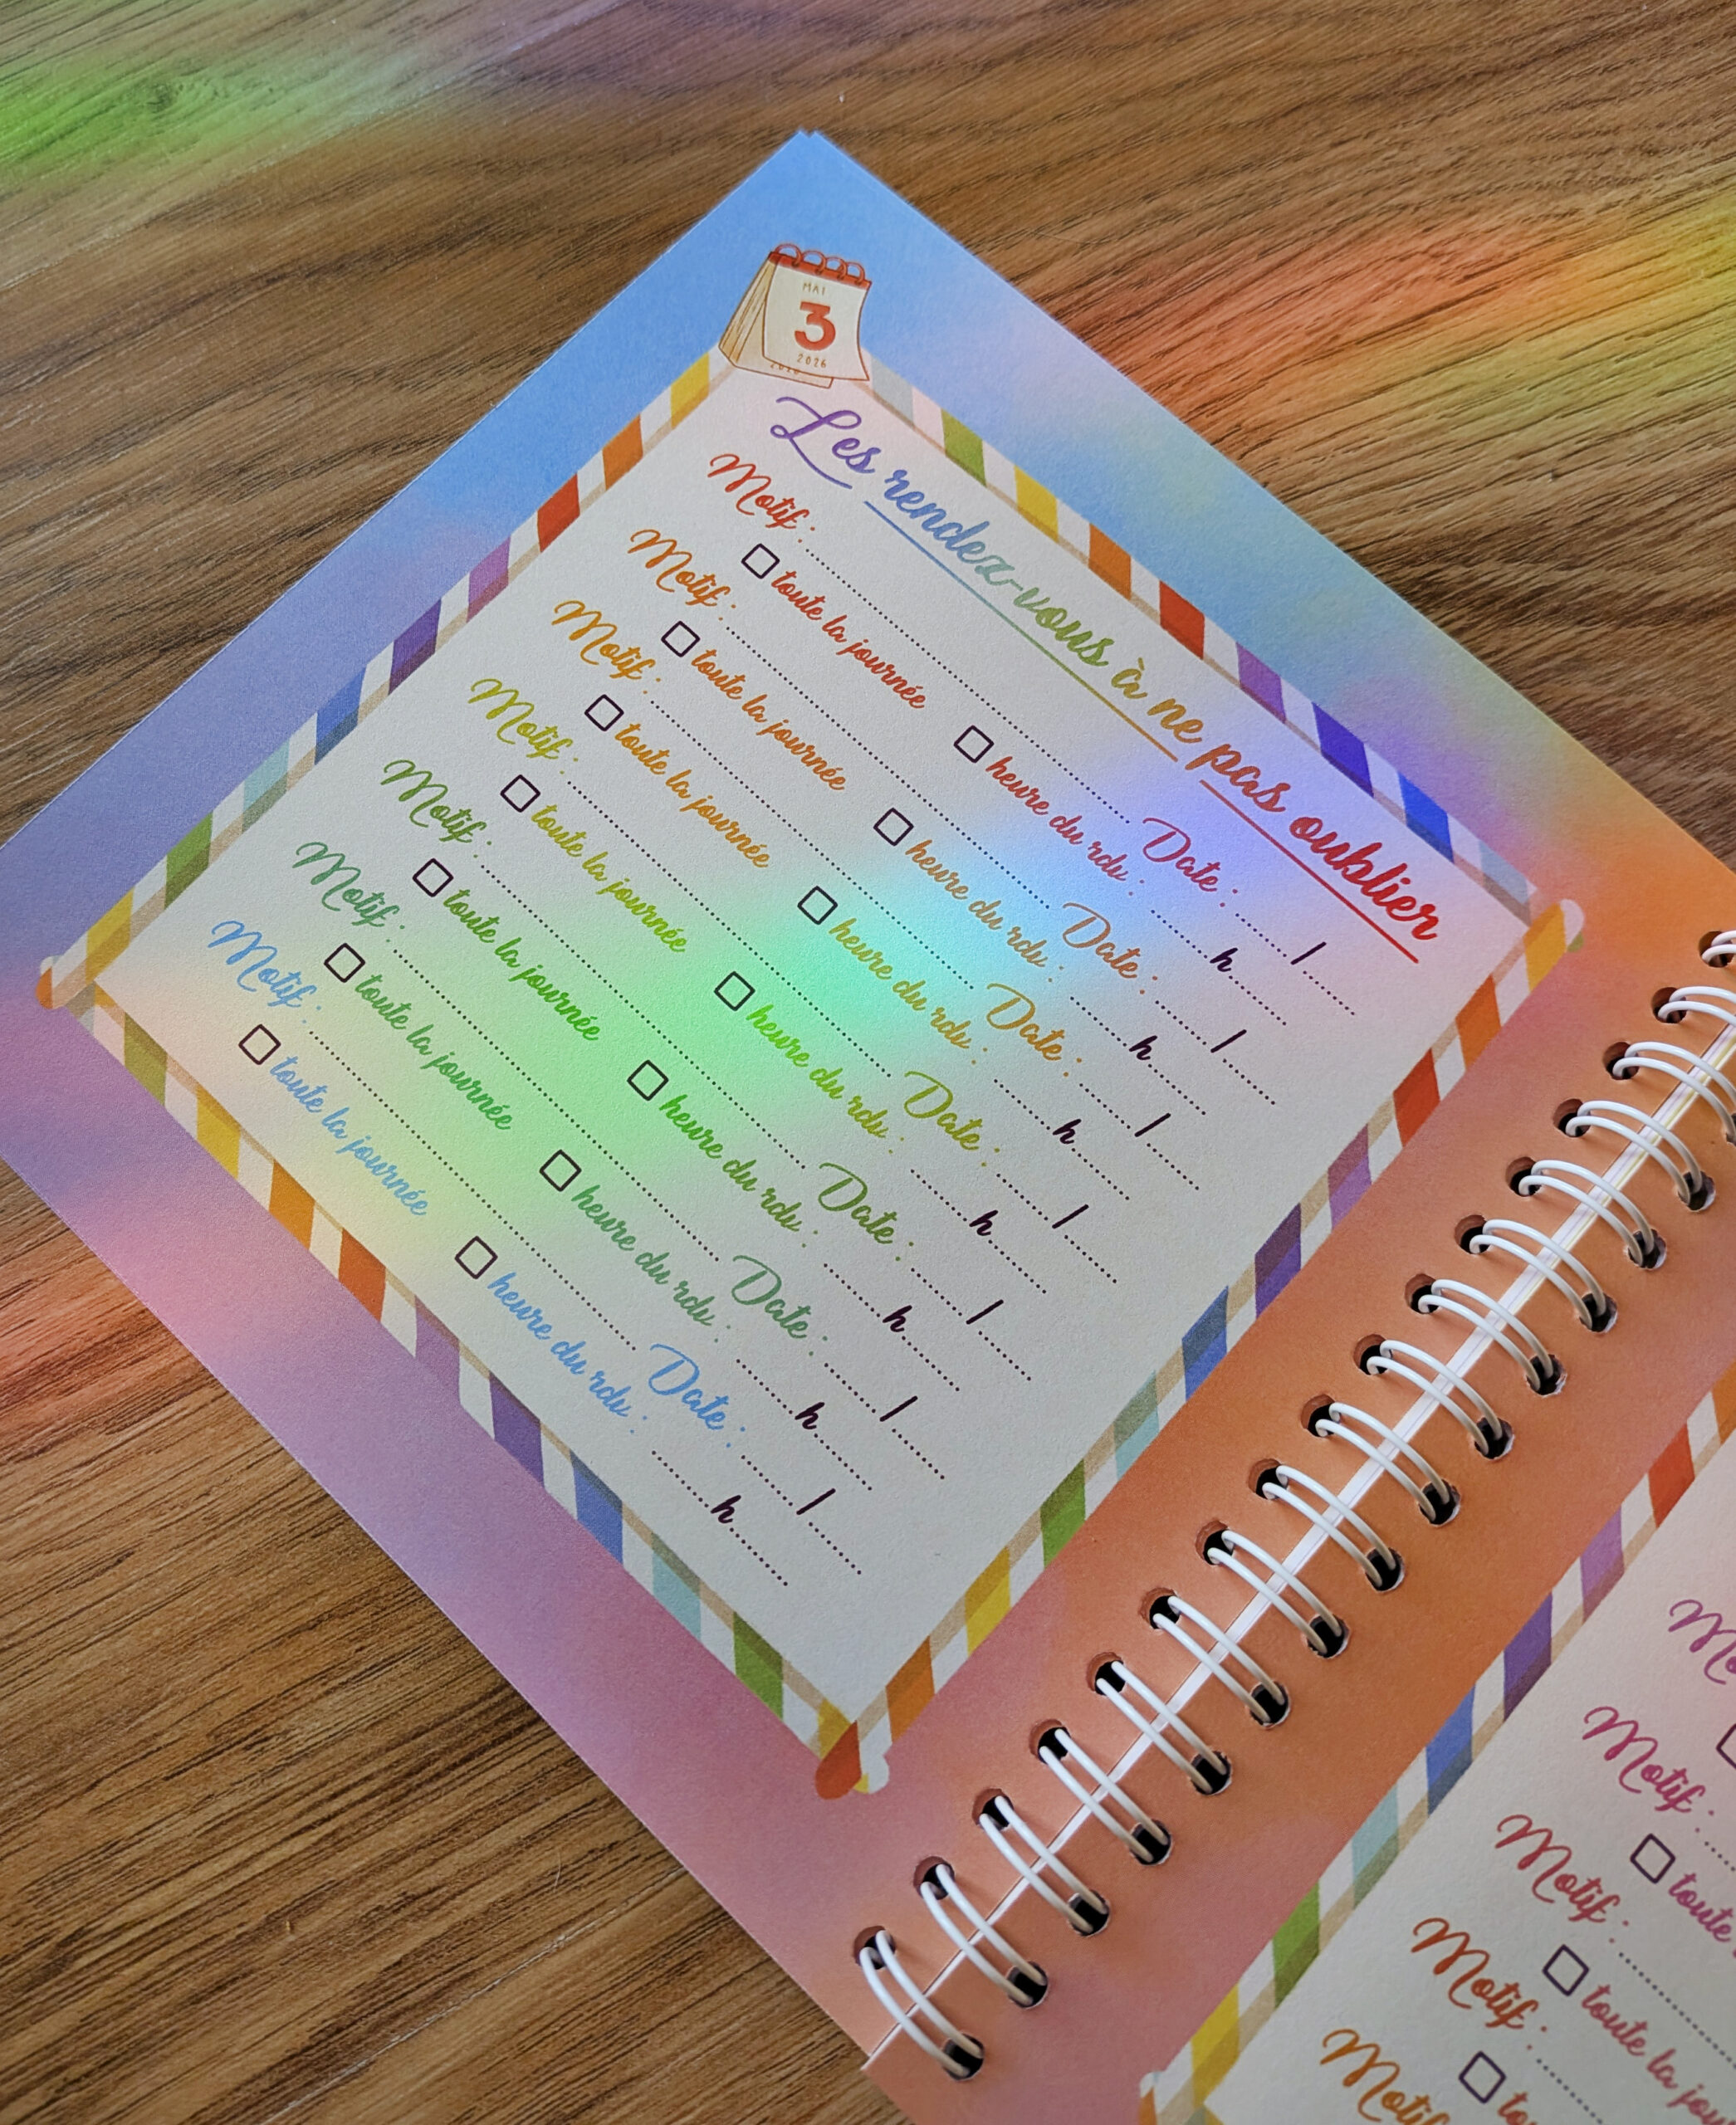 MAI
3
2026
Les rendez-vous à ne pas oublier
Motif : Date : /
toute la journée heure du rdv : h
Motif : Date : /
toute la journée heure du rdv : h
Motif : Date : /
toute la journée heure du rdv : h
Motif : Date : /
toute la journée heure du rdv : h
Motif : Date : /
toute la journée heure du rdv : h
Motif : Date : /
toute la journée heure du rdv : h
Motif : Date : /
toute la journée heure du rdv : h
Motif :
toute
Motif :
toute la
Motif :
Motif